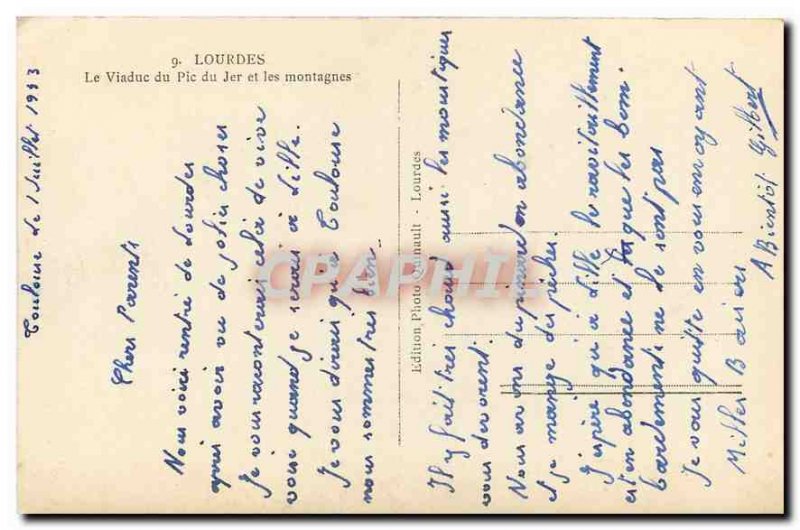 9. LOURDES
Le Viaduc du Pic du Jer et les montagnes
Toulouse le 1 Juillet 1943
Chers Parents
Nous voici rentré de Lourdes
après avoir vu de jolies choses
Je vous raconterais cela de vive
voix quand je serais à Lille.
Je vous dirais qu'a Toulouse
nous sommes tres bien.
Edition Photo - Lourdes
CPAPHIL
Il y fait très chaud aussi les moustiques
vous devorent.
Nous avons du piment en abondance
et je mange des pêches.
J'éspère qu'à Lille le ravitaillement
est en abondance et que les bom
bardements ne le sont pas
Je vous quitte en vous envoyant
Milles Baisers
A Bientôt Gilbert